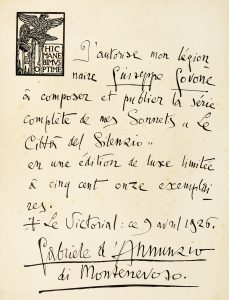 HIC
MANE
BIMVS
OPTIME
J'autorise mon légion
naire Giuseppe Govone
à composer et publier la série
complète de mes Sonnets « Le
Città del Silenzio »
en une édition de luxe limitée
à cinq cent onze exemplai
res.
Le Victorial : ce 9 avril 1926.
Gabriele d'Annunzio
di Montenevoso.